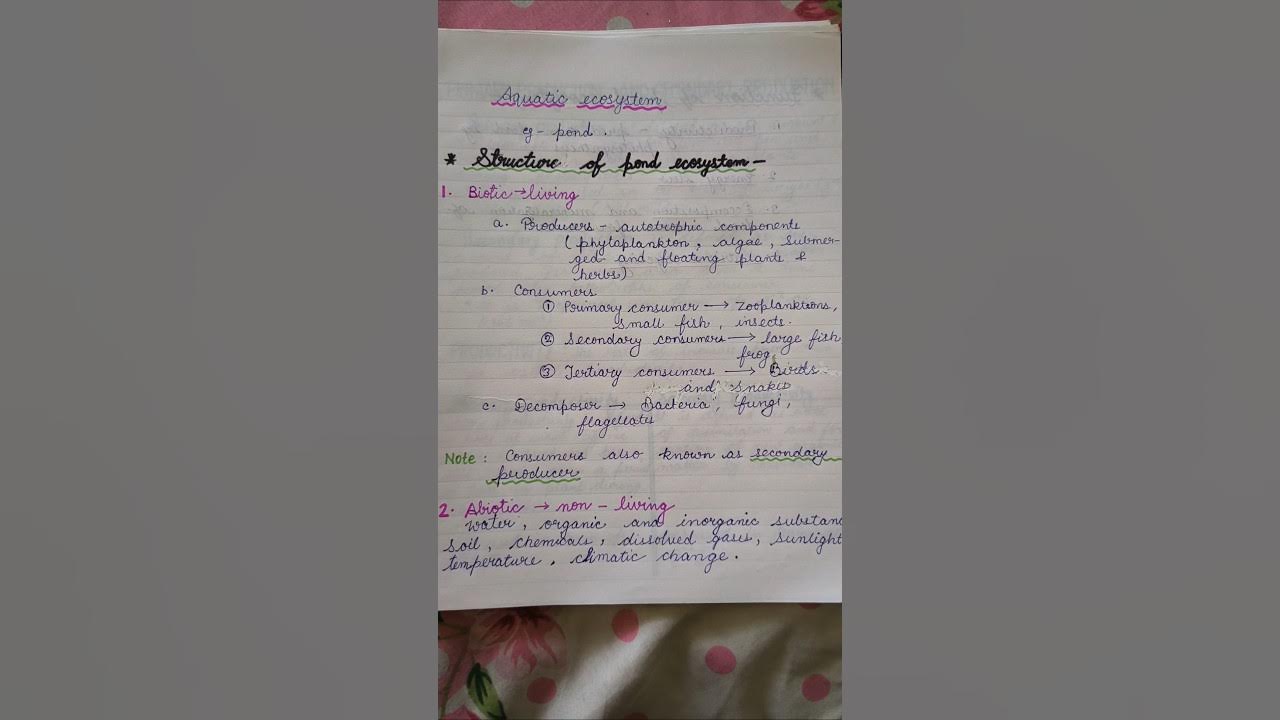 Aquatic ecosystem
eg - pond .
* Structure of pond ecosystem -
1. Biotic → living
a. Producers - autotrophic components
( phytoplankton , algae , submer-
ged and floating plants &
herbs )
b. Consumers
① Primary consumer → zooplanktons,
small fish , insects.
② Secondary consumers → large fish
frog
③ Tertiary consumers → Birds
and snakes
c. Decomposer → Bacteria , fungi ,
flagellates
Note : Consumers also known as secondary
producer
2. Abiotic → non - living
water , organic and inorganic substanc
soil , chemicals , dissolved gases , sunlight
temperature , climatic change .